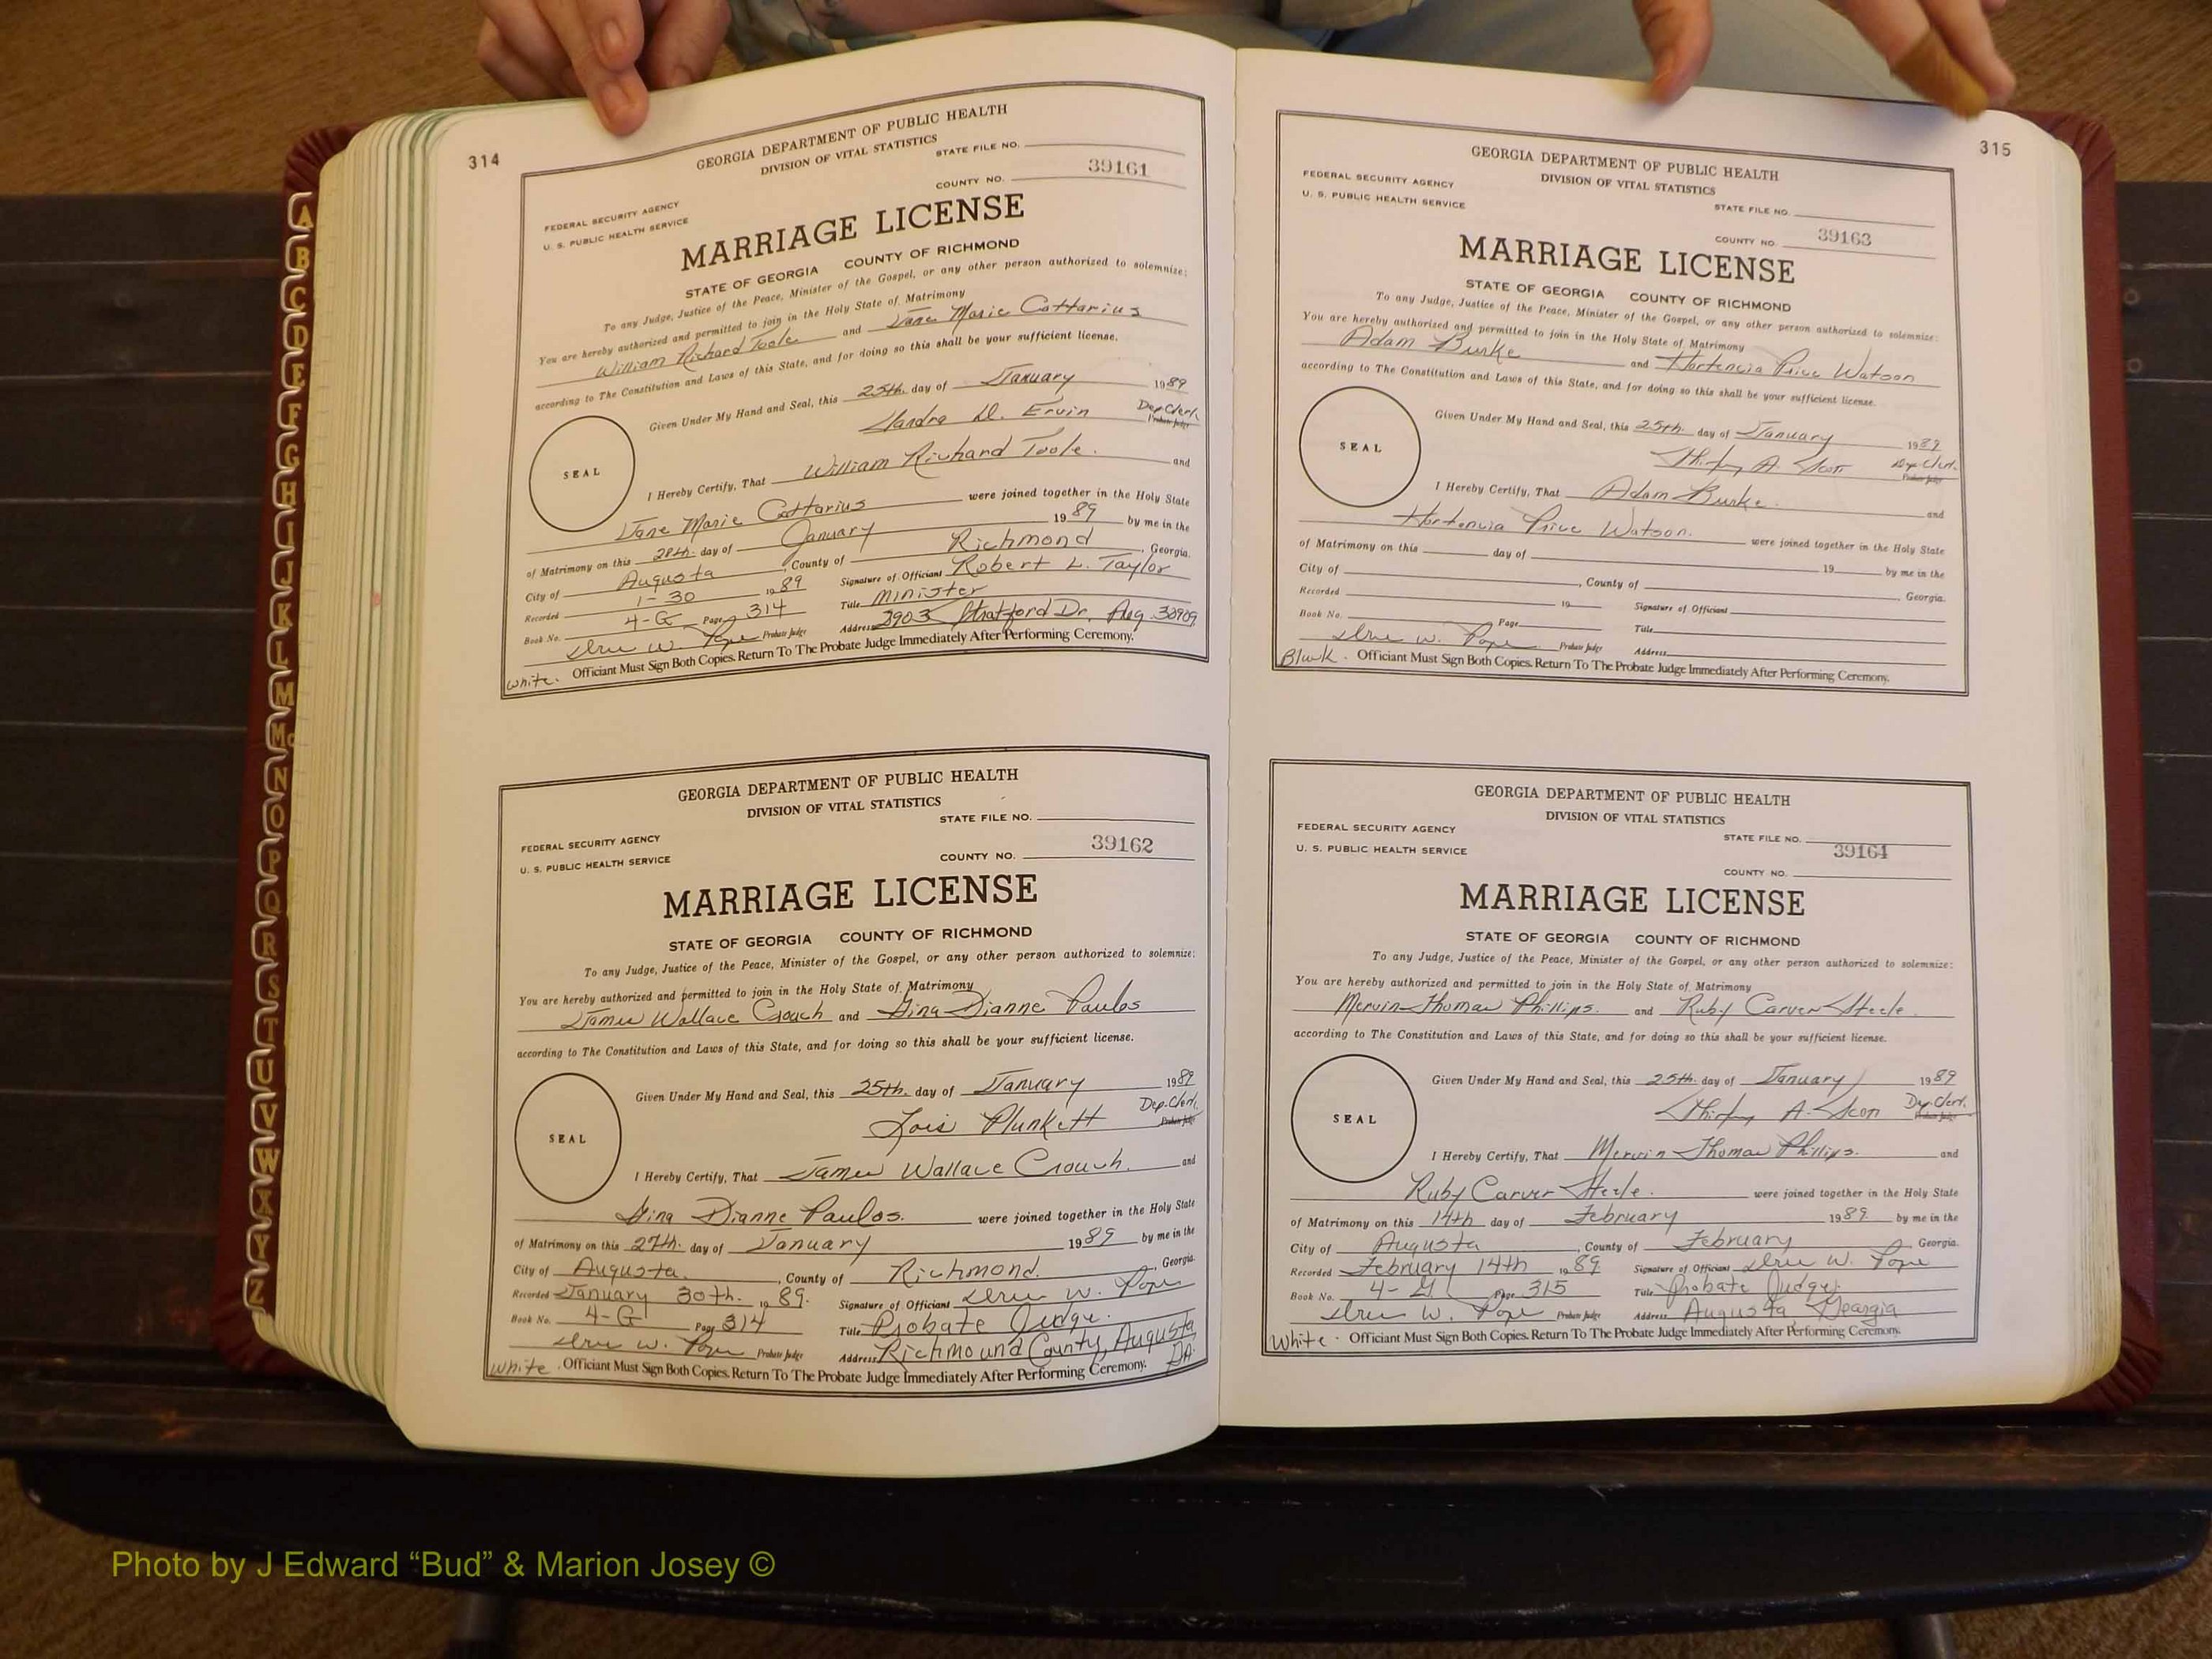 314
GEORGIA DEPARTMENT OF PUBLIC HEALTH
DIVISION OF VITAL STATISTICS
STATE FILE NO.
FEDERAL SECURITY AGENCY
U. S. PUBLIC HEALTH SERVICE
COUNTY NO. 39161
MARRIAGE LICENSE
STATE OF GEORGIA COUNTY OF RICHMOND
To any Judge, Justice of the Peace, Minister of the Gospel, or any other person authorized to solemnize:
You are hereby authorized and permitted to join in the Holy State of Matrimony
William Richard Toole and Jane Marie Cattarius
according to The Constitution and Laws of this State, and for doing so this shall be your sufficient license.
Given Under My Hand and Seal, this 25th. day of January 1989
Sandra D. Ervin Dep. Clerk.
Probate Judge
SEAL
I Hereby Certify, That William Richard Toole. and
Jane Marie Cattarius were joined together in the Holy State
of Matrimony on this 28th. day of January 1989 by me in the
City of Augusta, County of Richmond, Georgia.
Recorded 1-30 1989 Signature of Officiant Robert L. Taylor
Book No. 4-G Page 314 Title Minister
Probate Judge Address 3903 Stratford Dr. Aug. 30909
White. Officiant Must Sign Both Copies. Return To The Probate Judge Immediately After Performing Ceremony.
GEORGIA DEPARTMENT OF PUBLIC HEALTH
DIVISION OF VITAL STATISTICS
STATE FILE NO.
FEDERAL SECURITY AGENCY
U. S. PUBLIC HEALTH SERVICE
COUNTY NO. 39162
MARRIAGE LICENSE
STATE OF GEORGIA COUNTY OF RICHMOND
To any Judge, Justice of the Peace, Minister of the Gospel, or any other person authorized to solemnize:
You are hereby authorized and permitted to join in the Holy State of Matrimony
James Wallace Crouch and Gina Dianne Paulos
according to The Constitution and Laws of this State, and for doing so this shall be your sufficient license.
Given Under My Hand and Seal, this 25th. day of January 1989
Lois Plunkett Dep. Clerk.
Probate Judge
SEAL
I Hereby Certify, That James Wallace Crouch. and
Gina Dianne Paulos. were joined together in the Holy State
of Matrimony on this 27th. day of January 1989 by me in the
City of Augusta., County of Richmond., Georgia.
Recorded January 30th. 1989. Signature of Officiant W. Pope
Book No. 4-G Page 314 Title Probate Judge.
W. Pope Probate Judge Address Richmound County, Augusta GA.
White. Officiant Must Sign Both Copies. Return To The Probate Judge Immediately After Performing Ceremony.
315
GEORGIA DEPARTMENT OF PUBLIC HEALTH
DIVISION OF VITAL STATISTICS
FEDERAL SECURITY AGENCY
U. S. PUBLIC HEALTH SERVICE
STATE FILE NO.
COUNTY NO. 39163
MARRIAGE LICENSE
STATE OF GEORGIA COUNTY OF RICHMOND
To any Judge, Justice of the Peace, Minister of the Gospel, or any other person authorized to solemnize:
You are hereby authorized and permitted to join in the Holy State of Matrimony
Adam Burke and Hortencia Price Watson
according to The Constitution and Laws of this State, and for doing so this shall be your sufficient license.
Given Under My Hand and Seal, this 25th. day of January 1989
A. Scott Dep. Clerk.
Probate Judge
SEAL
I Hereby Certify, That Adam Burke. and
Hortencia Price Watson. were joined together in the Holy State
of Matrimony on this day of 19 by me in the
City of , County of , Georgia.
Recorded 19 Signature of Officiant
Book No. Page Title
W. Pope Probate Judge Address
Black. Officiant Must Sign Both Copies. Return To The Probate Judge Immediately After Performing Ceremony.
GEORGIA DEPARTMENT OF PUBLIC HEALTH
DIVISION OF VITAL STATISTICS
FEDERAL SECURITY AGENCY
U. S. PUBLIC HEALTH SERVICE
STATE FILE NO.
39164
COUNTY NO.
MARRIAGE LICENSE
STATE OF GEORGIA COUNTY OF RICHMOND
To any Judge, Justice of the Peace, Minister of the Gospel, or any other person authorized to solemnize:
You are hereby authorized and permitted to join in the Holy State of Matrimony
Mervin Thomas Phillips. and Ruby Carver Steele.
according to The Constitution and Laws of this State, and for doing so this shall be your sufficient license.
Given Under My Hand and Seal, this 25th. day of January 1989
A. Scott Dep. Clerk.
Probate Judge
SEAL
I Hereby Certify, That Mervin Thomas Phillips. and
Ruby Carver Steele. were joined together in the Holy State
of Matrimony on this 14th day of February 1989 by me in the
City of Augusta, County of February, Georgia.
Recorded February 14th 1989 Signature of Officiant W. Pope
Book No. 4-G Page 315 Title Probate Judge.
W. Pope Probate Judge Address Augusta, Georgia
White. Officiant Must Sign Both Copies. Return To The Probate Judge Immediately After Performing Ceremony.
A
B
C
D
E
F
G
H
I
J
K
L
M
Mc
N
O
P
Q
R
S
T
U
V
W
X
Y
Z
Photo by J Edward “Bud” & Marion Josey ©